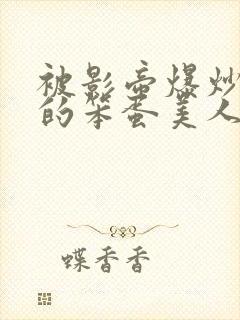 被影帝爆炒
的笨蛋美人
蝶香香